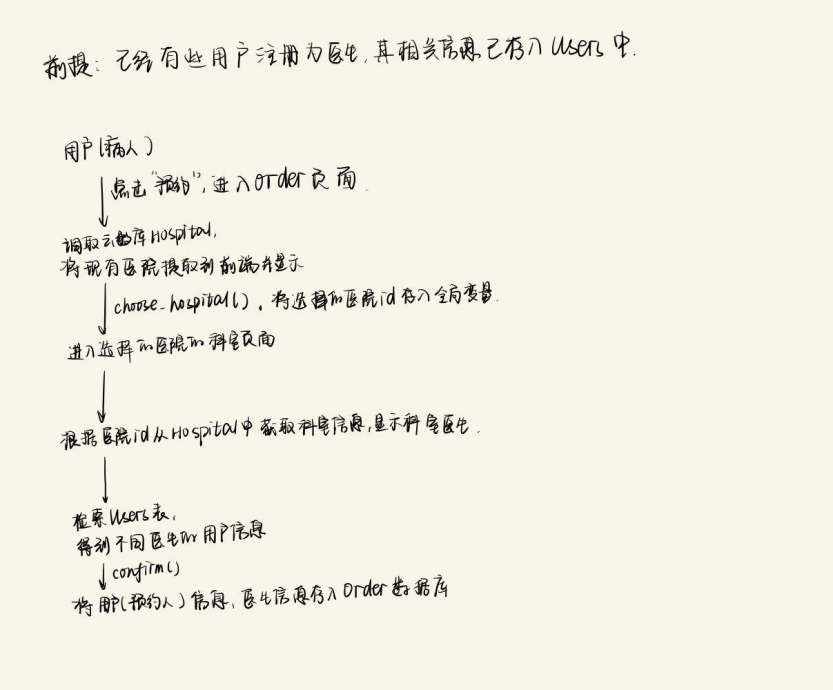 前提：已经有些用户注册为医生，其相关信息已存入Users中.
用户(病人)
点击“预约”，进入order页面.
调取云数库Hospital,
将现有医院提取到前端并显示
choose_hospital()，将选择的医院id存入全局变量.
进入选择的医院的科室页面
根据医院id从Hospital中获取科室信息,显示科室医生.
检索Users表,
得到不同医生的用户信息
confirm()
将用户(预约人)信息、医生信息存入Order数据库